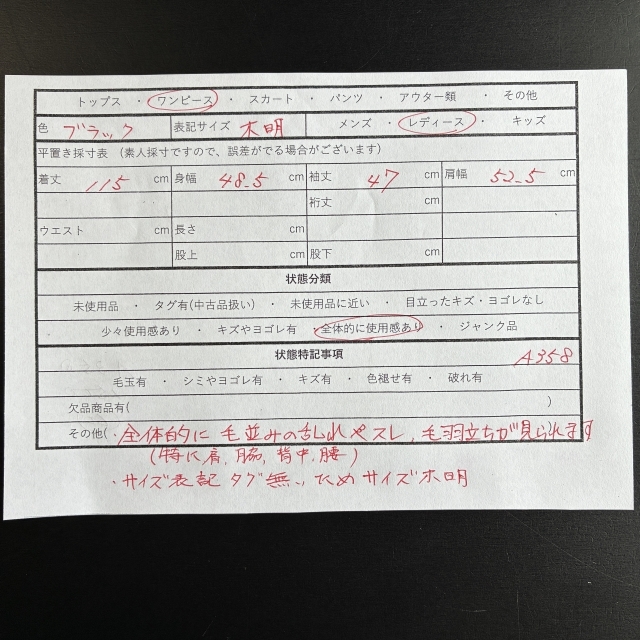 トップス ・ ワンピース ・ スカート ・ パンツ ・ アウター類 ・ その他
色 ブラック 表記サイズ 不明 メンズ ・ レディース ・ キッズ
平置き採寸表 (素人採寸ですので、誤差がでる場合がございます)
着丈 115 cm 身幅 48.5 cm 袖丈 47 cm 肩幅 52.5 cm
裄丈 cm
ウエスト cm 長さ cm
股上 cm 股下 cm
状態分類
未使用品 ・ タグ有(中古品扱い) ・ 未使用品に近い ・ 目立ったキズ・ヨゴレなし
少々使用感あり ・ キズやヨゴレ有 ・ 全体的に使用感あり ・ ジャンク品
状態特記事項 A358
毛玉有 ・ シミやヨゴレ有 ・ キズ有 ・ 色褪せ有 ・ 破れ有
欠品商品有( )
その他( ・全体的に毛並みの乱れやスレ、毛羽立ちが見られます )
(特に肩、脇、背中、腰)
・サイズ表記タグ無いためサイズ不明